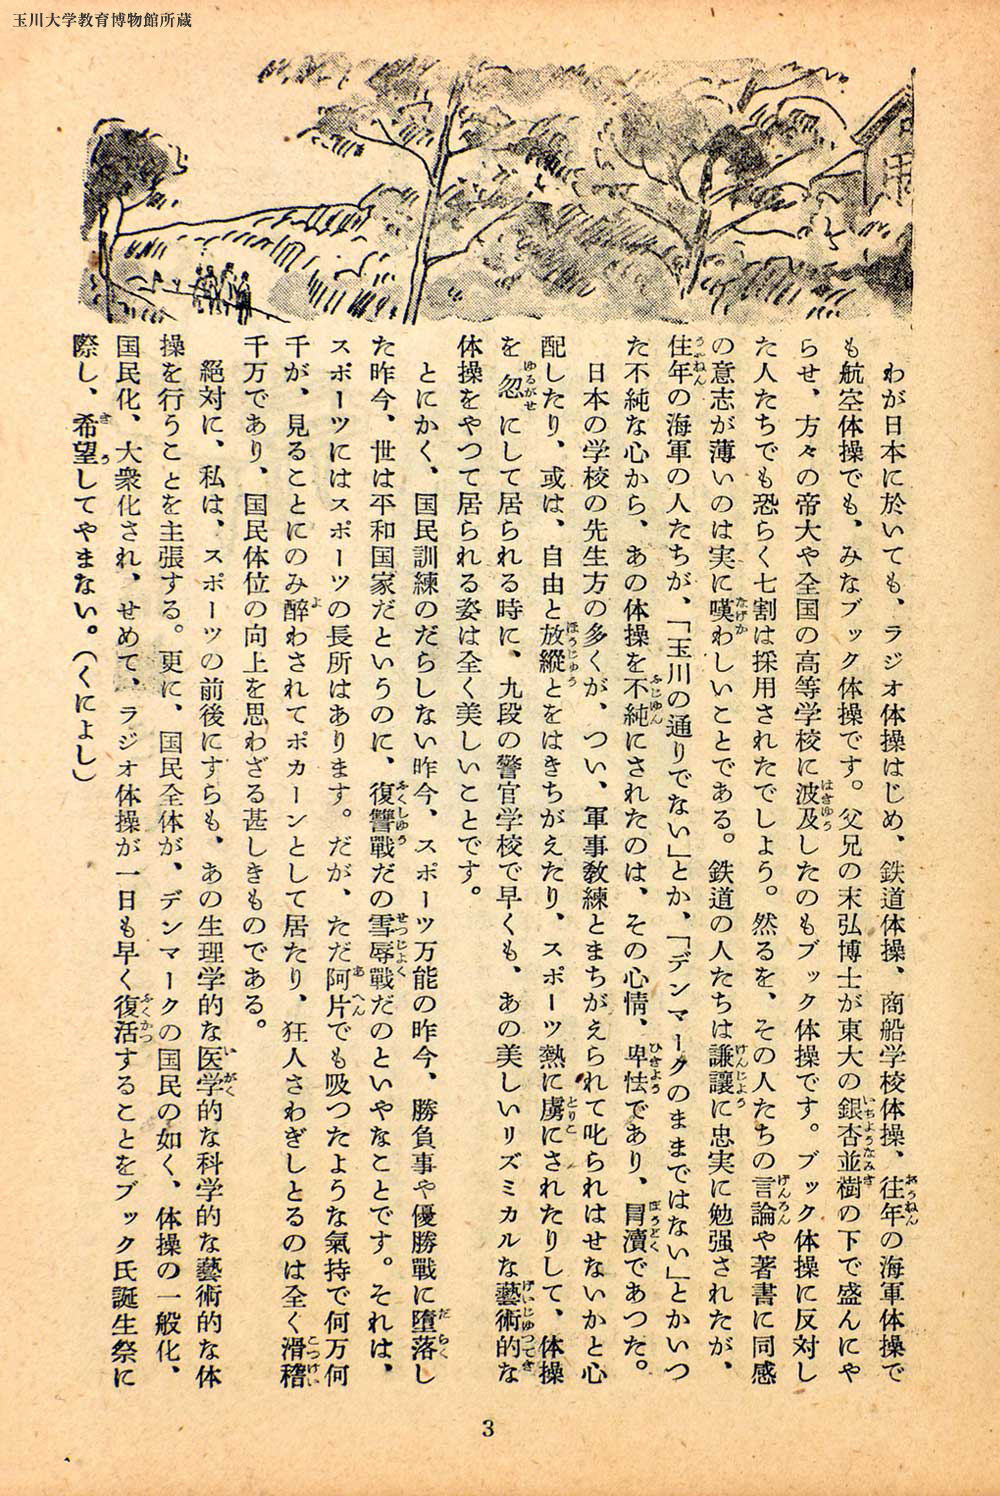 玉川大学教育博物館所蔵
わが日本に於いても、ラジオ体操はじめ、鉄道体操、商船学校体操、往年の海軍体操で
も航空体操でも、みなブック体操です。父兄の末弘博士が東大の銀杏並樹の下で盛んにや
らせ、方々の帝大や全国の高等学校に波及したのもブック体操です。ブック体操に反対し
た人たちでも恐らく七割は採用されたでしよう。然るを、その人たちの言論や著書に同感
の意志が薄いのは実に嘆わしいことである。鉄道の人たちは謙讓に忠実に勉强されたが、
往年の海軍の人たちが、「玉川の通りでない」とか、「デンマークのままではない」とかいつ
た不純な心から、あの体操を不純にされたのは、その心情、卑怯であり、冒瀆であつた。
日本の学校の先生方の多くが、つい、軍事教練とまちがえられて叱られはせないかと心
配したり、或は、自由と放縱とをはきちがえたり、スポーツ熱に虜にされたりして、体操
を忽にして居られる時に、九段の警官学校で早くも、あの美しいリズミカルな藝術的な
体操をやつて居られる姿は全く美しいことです。
とにかく、国民訓練のだらしない昨今、スポーツ万能の昨今、勝負事や優勝戰に墮落し
た昨今、世は平和国家だというのに、復讐戰だの雪辱戰だのといやなことです。それは、
スポーツにはスポーツの長所はあります。だが、ただ阿片でも吸つたような氣持で何万何
千が、見ることにのみ醉わされてポカーンとして居たり、狂人さわぎしとるのは全く滑稽
千万であり、国民体位の向上を思わざる甚しきものである。
絶対に、私は、スポーツの前後にすらも、あの生理学的な医学的な科学的な藝術的な体
操を行うことを主張する。更に、国民全体が、デンマークの国民の如く、体操の一般化、
国民化、大衆化され、せめて、ラジオ体操が一日も早く復活することをブック氏誕生祭に
際し、希望してやまない。（くによし）
3